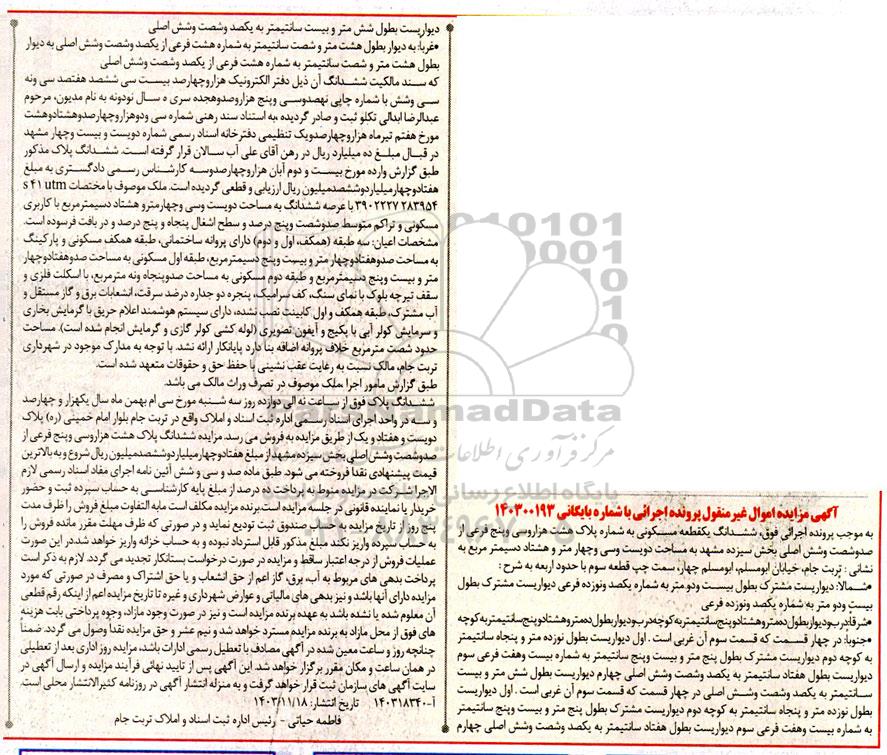 آگهی مزایده اموال غیر منقول پرونده اجرائی با شماره بایگانی ۱۴۰۳۰۰۱۹۳
به موجب پرونده اجرائی فوق، ششدانگ یکقطعه مسکونی به شماره پلاک هشت هزاروسی وپنج فرعی از
صدوشصت وشش اصلی بخش سیزده مشهد به مساحت دویست وسی وچهار متر و هشتاد دسیمتر مربع به
نشانی : تربت جام، خیابان ابومسلم، ابومسلم چهار، سمت چپ قطعه سوم با حدود اربعه به شرح :
•شمالا: دیواریست مشترک بطول بیست ودو متر به شماره یکصد ونوزده فرعی دیواریست مشترک بطول
بیست ودو متر به شماره یکصد ونوزده فرعی
•شرقا:درب ودیواربطول ده متروهشتادوپنج سانتیمتربه کوچه درب ودیواربطول ده متروهشتادوپنج سانتیمتربه کوچه
•جنوبا: در چهار قسمت که قسمت سوم آن غربی است . اول دیواریست بطول نوزده متر و پنجاه سانتیمتر
به کوچه دوم دیواریست مشترک بطول پنج متر و بیست وپنج سانتیمتر به شماره بیست وهفت فرعی سوم
دیواریست بطول هفتاد سانتیمتر به یکصد وشصت وشش اصلی چهارم دیواریست بطول شش متر و بیست
سانتیمتر به یکصد وشصت وشش اصلی در چهار قسمت که قسمت سوم آن غربی است . اول دیواریست
بطول نوزده متر و پنجاه سانتیمتر به کوچه دوم دیواریست مشترک بطول پنج متر و بیست وپنج سانتیمتر
به شماره بیست وهفت فرعی سوم دیواریست بطول هفتاد سانتیمتر به یکصد وشصت وشش اصلی چهارم
دیواریست بطول شش متر و بیست سانتیمتر به یکصد وشصت وشش اصلی
•غربا: به دیوار بطول هشت متر و شصت سانتیمتر به شماره هشت فرعی از یکصد وشصت وشش اصلی به دیوار
بطول هشت متر و شصت سانتیمتر به شماره هشت فرعی از یکصد وشصت وشش اصلی
که سند مالکیت ششدانگ آن ذیل دفتر الکترونیک هزاروچهارصد بیست سی ششصد هفتصد سی ونه
سی وشش با شماره چاپی نهصدوسی وپنج هزاروصدوهجده سری ه سال نودونه به نام مدیون، مرحوم
عبدالرضا ابدالی تکلو ثبت و صادر گردیده ،به استناد سند رهنی شماره سی ودوهزاروچهارصدوهشتادوهشت
مورخ هفتم تیرماه هزاروچهارصدویک تنظیمی دفترخانه اسناد رسمی شماره دویست و بیست وچهار مشهد
در قبال مبلغ ده میلیارد ریال در رهن آقای علی آب سالان قرار گرفته است. ششدانگ پلاک مذکور
طبق گزارش وارده مورخ بیست و دوم آبان هزاروچهارصدوسه کارشناس رسمی دادگستری به مبلغ
هفتادوچهارمیلیاردوششصدمیلیون ریال ارزیابی و قطعی گردیده است. ملک موصوف با مختصات s ۴۱ utm
۳۹۰۲۲۲۷ ۲۸۳۹۵۴ با عرصه ششدانگ به مساحت دویست وسی وچهارمترو هشتاد دسیمترمربع با کاربری
مسکونی و تراکم متوسط صدوشصت وپنج درصد و سطح اشغال پنجاه و پنج درصد و در بافت فرسوده است.
مشخصات اعیان: سه طبقه (همکف، اول و دوم) دارای پروانه ساختمانی، طبقه همکف مسکونی و پارکینگ
به مساحت صدوهفتادوچهار متر و بیست وپنج دسیمترمربع، طبقه اول مسکونی به مساحت صدوهفتادوچهار
متر و بیست وپنج دسیمترمربع و طبقه دوم مسکونی به مساحت صدوپنجاه ونه مترمربع، با اسکلت فلزی و
سقف تیرچه بلوک با نمای سنگ، کف سرامیک، پنجره دو جداره درضد سرقت، انشعابات برق و گاز مستقل و
آب مشترک، طبقه همکف و اول کابینت نصب نشده، دارای سیستم هوشمند اعلام حریق با گرمایش بخاری
و سرمایش کولر آبی با پکیج و آیفون تصویری (لوله کشی کولر گازی و گرمایش انجام شده است). مساحت
حدود شصت مترمربع خلاف پروانه اضافه بنا دارد پایانکار ارائه نشد. با توجه به مدارک موجود در شهرداری
تربت جام، مالک نسبت به رعایت عقب نشینی با حفظ حق و حقوقات متعهد شده است.
طبق گزارش مامور اجرا ،ملک موصوف در تصرف وراث مالک می باشد.
ششدانگ پلاک فوق از ساعت نه الی دوازده روز سه شنبه مورخ سی ام بهمن ماه سال یکهزار و چهارصد
و سه در واحد اجرای اسناد رسمی اداره ثبت اسناد و املاک واقع در تربت جام بلوار امام خمینی (ره) پلاک
دویست و هفتاد و یک از طریق مزایده به فروش می رسد. مزایده ششدانگ پلاک هشت هزاروسی وپنج فرعی از
صدوشصت وشش اصلی بخش سیزده مشهد از مبلغ هفتادوچهارمیلیاردوششصدمیلیون ریال شروع و به بالاترین
قیمت پیشنهادی نقدا فروخته می شود. طبق ماده صد و سی و شش آئین نامه اجرای مفاد اسناد رسمی لازم
الاجرا شرکت در مزایده منوط به پرداخت ده درصد از مبلغ پایه کارشناسی به حساب سپرده ثبت و حضور
خریدار یا نماینده قانونی در جلسه مزایده است.برنده مزایده مکلف است مابه التفاوت مبلغ فروش را ظرف مدت
پنج روز از تاریخ مزایده به حساب صندوق ثبت تودیع نماید و در صورتی که ظرف مهلت مقرر مانده فروش را
به حساب سپرده واریز نکند مبلغ مذکور قابل استرداد نبوده و به حساب خزانه واریز خواهد شد.در این صورت
عملیات فروش از درجه اعتبار ساقط و مزایده در صورت درخواست بستانکار تجدید می گردد. لازم به ذکر است
پرداخت بدهی های مربوط به آب، برق، گاز اعم از حق انشعاب و یا حق اشتراک و مصرف در صورتی که مورد
مزایده دارای آنها باشد و نیز بدهی های مالیاتی و عوارض شهرداری و غیره تا تاریخ مزایده اعم از اینکه رقم قطعی
آن معلوم شده یا نشده باشد به عهده برنده مزایده است و نیز در صورت وجود مازاد، وجوه پرداختی بابت هزینه
های فوق از محل مازاد به برنده مزایده مسترد خواهد شد و نیم عشر و حق مزایده نقداً وصول می گردد. ضمناً
چنانچه روز و ساعت معین شده در آگهی مصادف با تعطیل رسمی ادارات باشد، مزایده روز اداری بعد از تعطیلی
در همان ساعت و مکان مقرر برگزار خواهد شد. این آگهی پس از تایید نهائی فرآیند مزایده و ارسال آگهی در
سایت آگهی های سازمان ثبت قرار خواهد گرفت و به منزله انتشار آگهی در روزنامه کثیرالانتشار محلی است.
آ-۱۴۰۳۱۸۳۴۰ تاریخ انتشار: ۱۴۰۳/۱۱/۱۸
فاطمه حیاتی - رئیس اداره ثبت اسناد و املاک تربت جام
ParsNamadData
مرکز فرآوری اطلاعات
پایگاه اطلاع رسانی